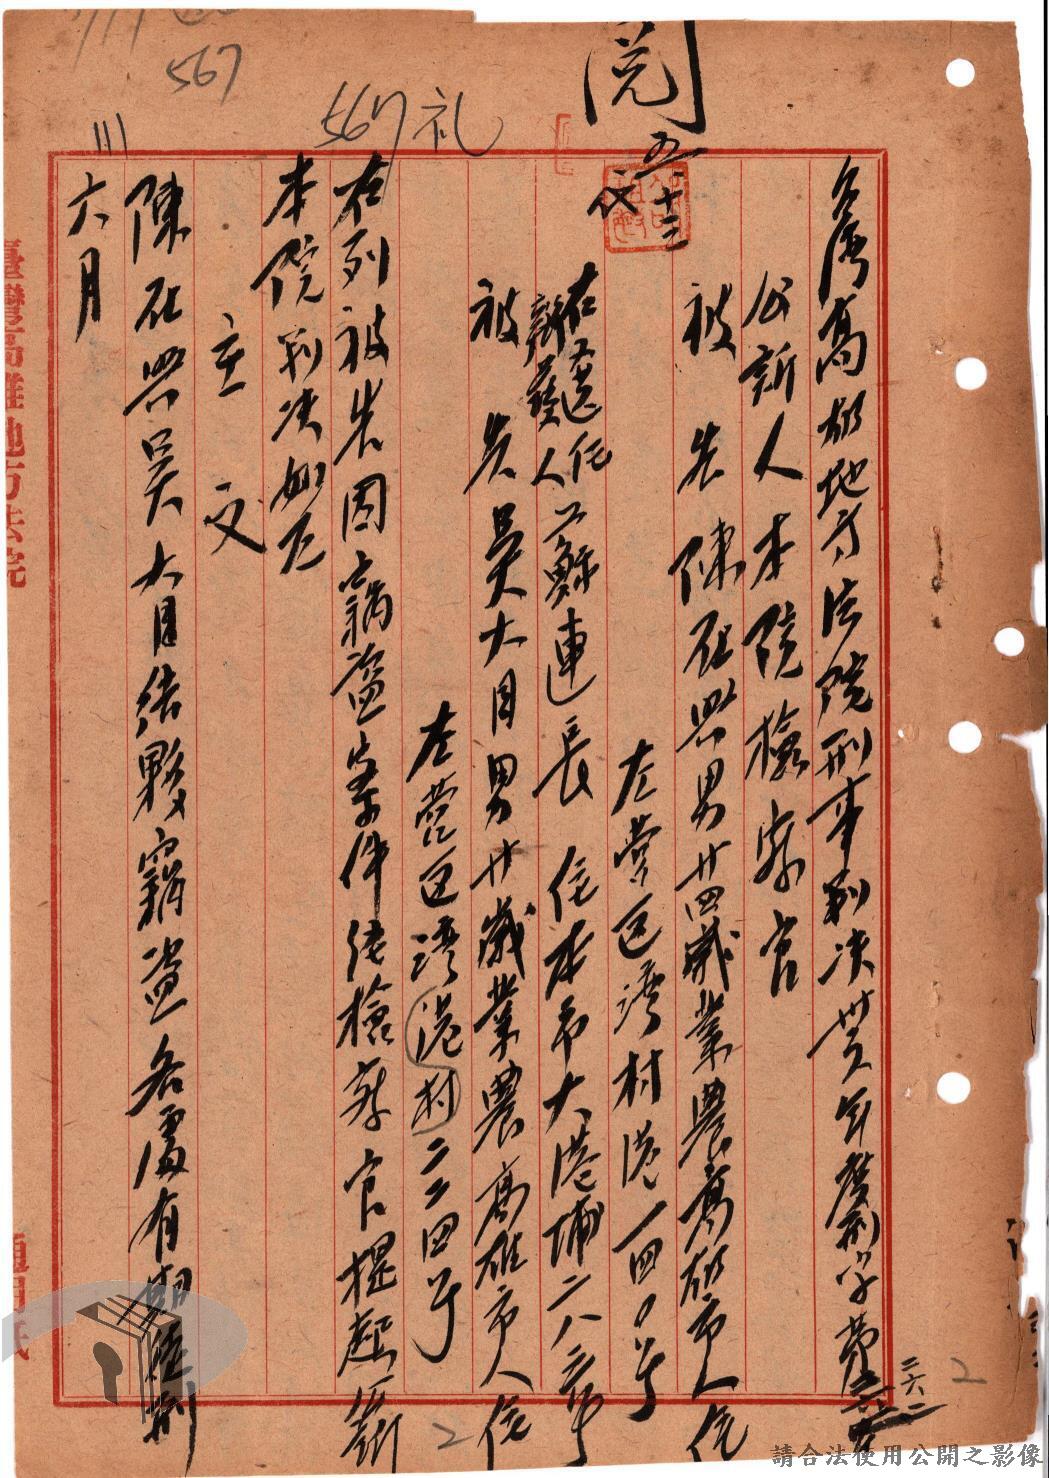 567
567 礼
閱
五、十三
台湾高雄地方法院刑事判決卅六年度刑字第
二六二
公訴人本院檢察官
被告陳石興男廿四歲業農高雄市人住
左營區湾村港一四〇号
右選任
辯護人
蘇連長 住本市大港埔二八二号
被告吳大目男廿歲業農高雄市人住
左營區湾港村二二四号
右列被告因竊盜案件經檢察官提起公訴
本院判决如左
主文
陳石興吳大目結夥竊盜各處有期徒刑
六月
臺灣高雄地方法院
2
2
請合法使用公開之影像